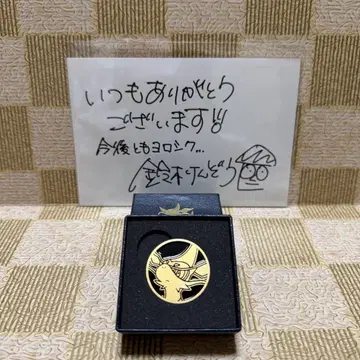 いつもありがとう
ございます!!!
今後ともヨロシク...
鈴木けんぞう